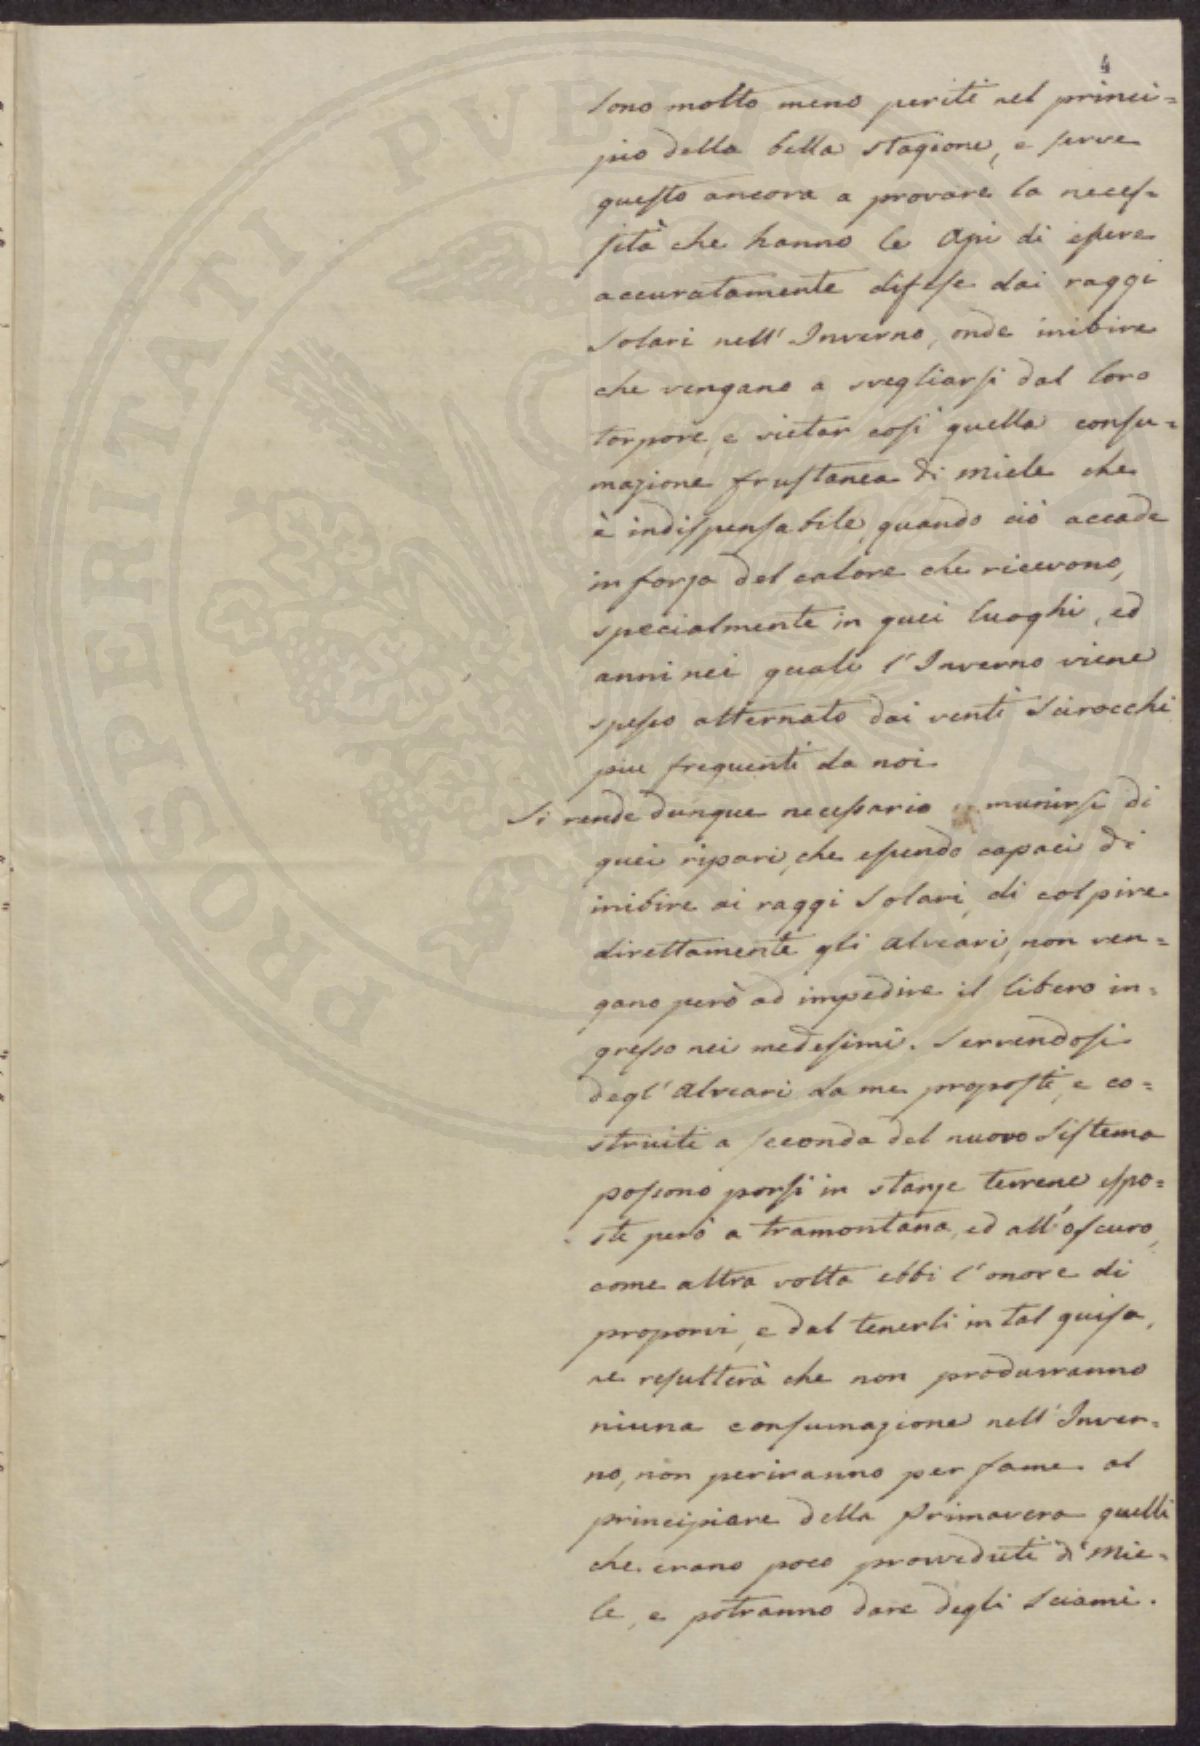 4
sono molto meno periti nel princi=
pio della bella stagione, e serve
questo ancora a provare la neces=
sità che hanno le Api di essere
accuratamente difese dai raggi
Solari nell' Inverno, onde inibire
che vengano a svegliarsi dal loro
torpore, e vietar così quella consu=
mazione frustanea di miele che
è indispensabile, quando ciò accade
in forza del calore che ricevono,
specialmente in quei luoghi, ed
anni nei quali l'Inverno viene
spesso alternato dai venti Scirocchi
piu frequenti da noi.
Si rende dunque necessario munirsi di
quei ripari, che essendo capaci di
inibire ai raggi Solari, di colpire
direttamente gli Alveari, non ven=
gano però ad impedire il libero in=
gresso nei medesimi. Servendosi
degl' Alveari da me proposti, e co=
struiti a seconda del nuovo Sistema
possono porsi in stanze terrene espo=
ste però a tramontana, ed all'oscuro,
come altra volta ebbi l'onore di
proporvi, e dal tenerli in tal guisa,
ne resulterà che non produrranno
niuna consumazione nell' Inver=
no, non periranno per fame al
principiare della Primavera quelli
che erano poco provveduti di Mie=
le, e potranno dare degli Sciami.
PROSPERITATI PVBLIC